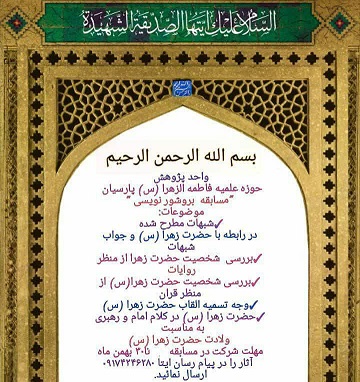 السلام علیک ایتها الصدیقة الشهیدة
بسم الله الرحمن الرحیم
واحد پژوهش
حوزه علمیه فاطمه الزهرا (س) پارسیان
"مسابقه بروشور نویسی"
موضوعات:
✓شبهات مطرح شده
در رابطه با حضرت زهرا (س) و جواب
شبهات
✓بررسی شخصیت حضرت زهرا از منظر
روایات
✓بررسی شخصیت حضرت زهرا(س) از
منظر قران
✓وجه تسمیه القاب حضرت زهرا (س)
✓حضرت زهرا (س) در کلام امام و رهبری
به مناسبت
ولادت حضرت زهرا (س)
مهلت شرکت در مسابقه تا۳۰ بهمن ماه
آثار را در پیام رسان ایتا ۰۹۱۷۴۲۴۶۲۸۰
ارسال نمائید.